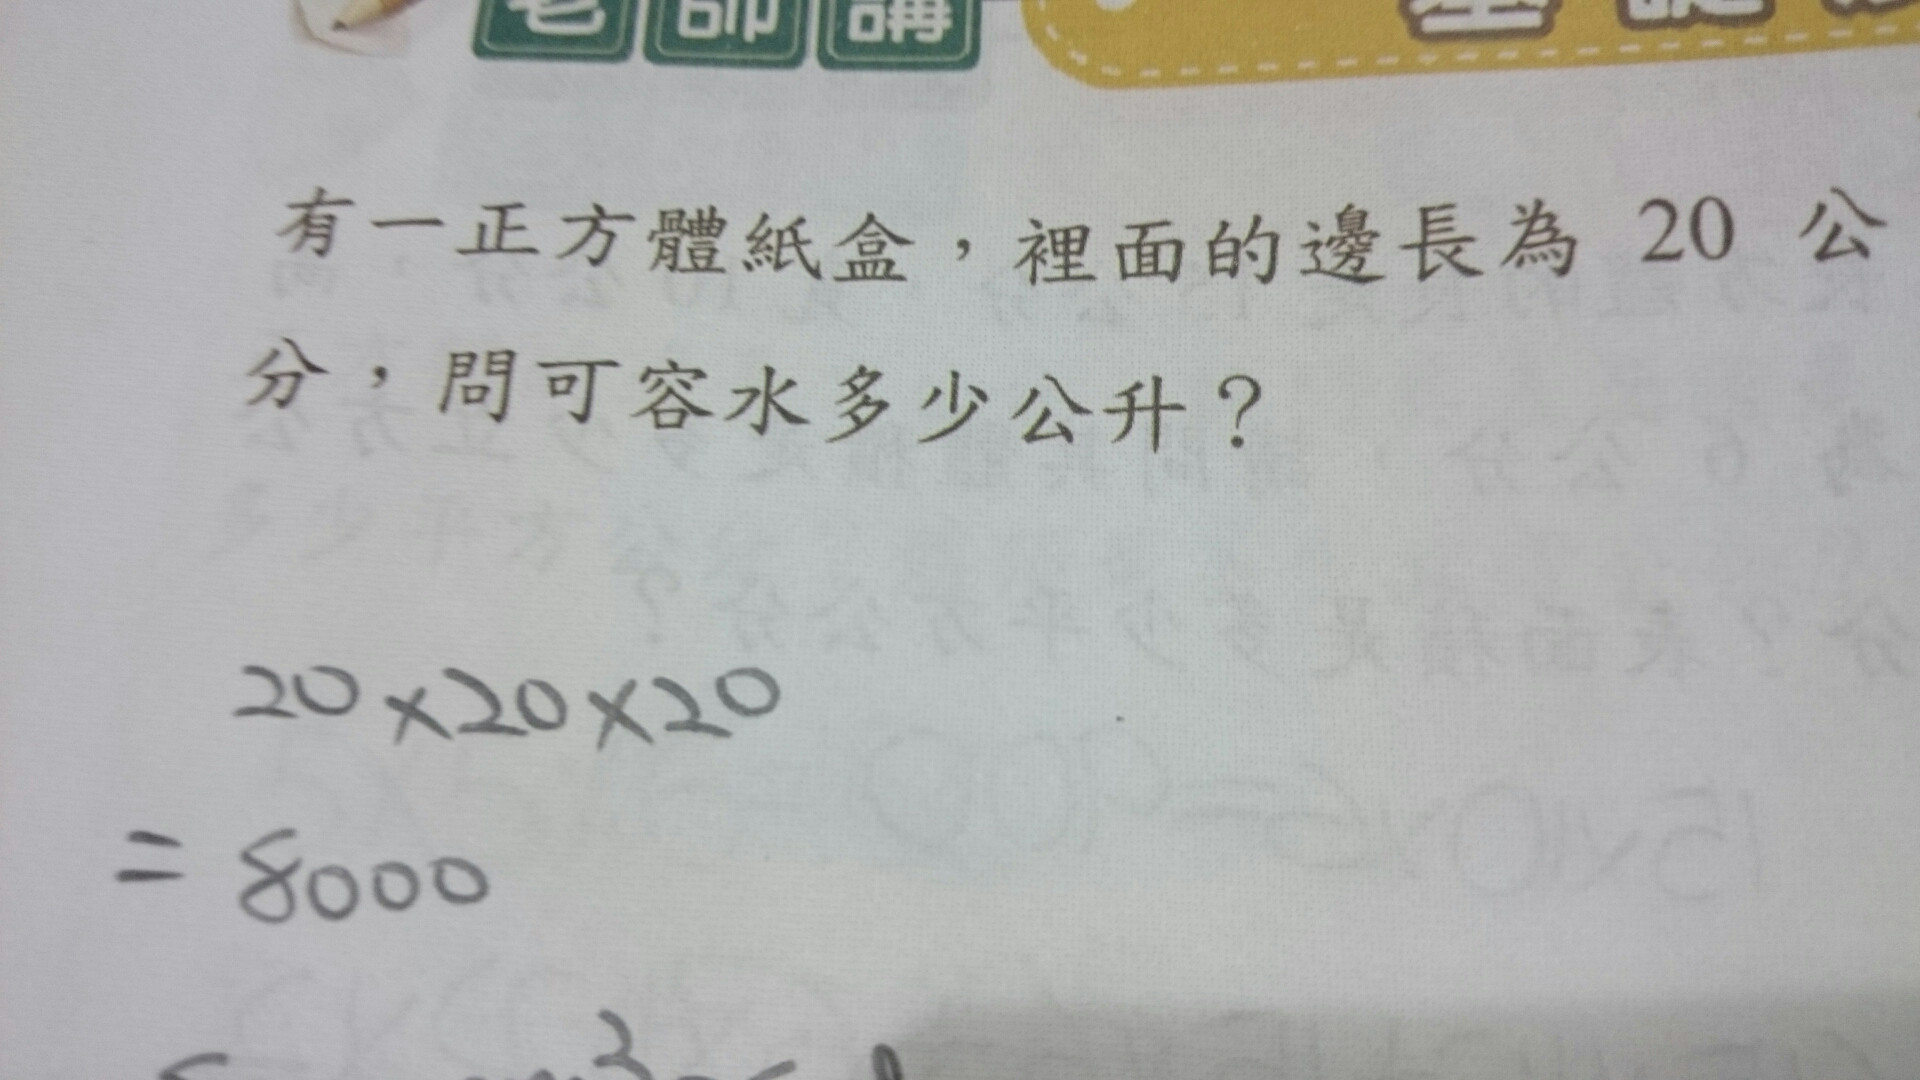 老師講
有一正方體紙盒，裡面的邊長為 20 公
分，問可容水多少公升？
20×20×20
=8000